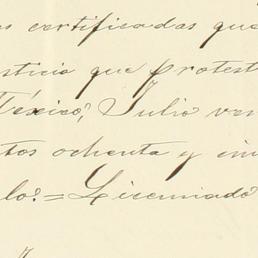 s certificadas que
sticia que protest
México, Julio ve
tos ochenta y cin
lo. = Licenciado